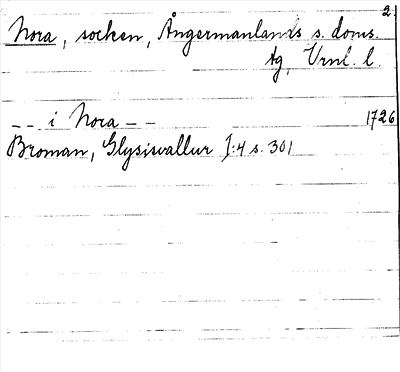 2.
Nora, socken, Ångermanlands s. doms.
tg, Vrnl. l.
-- i Nora -- 1726
Broman, Glysisvallur I:4 s. 301